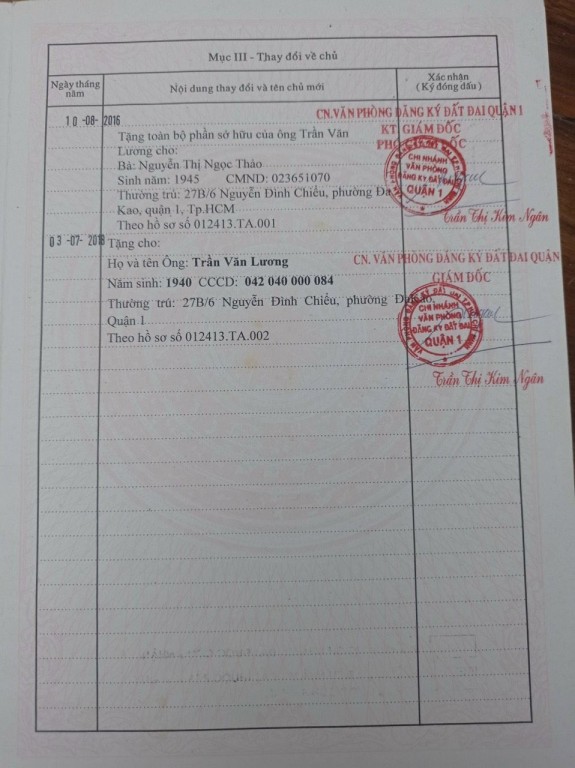 Mục III - Thay đổi về chủ
Ngày tháng năm
Nội dung thay đổi và tên chủ mới
Xác nhận
( Ký đóng dấu )
10-08-2016
Tặng toàn bộ phần sở hữu của ông Trần Văn
Lương cho:
Bà: Nguyễn Thị Ngọc Thảo
Sinh năm: 1945 CMND: 023651070
Thường trú: 27B/6 Nguyễn Đình Chiểu, phường Đa
Kao, quận 1, Tp.HCM
Theo hồ sơ số 012413.TA.001
CN.VĂN PHÒNG ĐĂNG KÝ ĐẤT ĐAI QUẬN 1
KT GIÁM ĐỐC
CHI NHÁNH
VĂN PHÒNG
ĐĂNG KÝ ĐẤT ĐAI
QUẬN 1
Trần Thị Kim Ngân
03-07-2018
Tặng cho:
Họ và tên Ông: Trần Văn Lương
Năm sinh: 1940 CCCD: 042 040 000 084
Thường trú: 27B/6 Nguyễn Đình Chiểu, phường
Quận 1
Theo hồ sơ số 012413.TA.002
CN. VĂN PHÒNG ĐĂNG KÝ ĐẤT ĐAI QUẬN
GIÁM ĐỐC
CHI NHÁNH
VĂN PHÒNG
ĐĂNG KÝ ĐẤT ĐAI
QUẬN 1
Trần Thị Kim Ngân